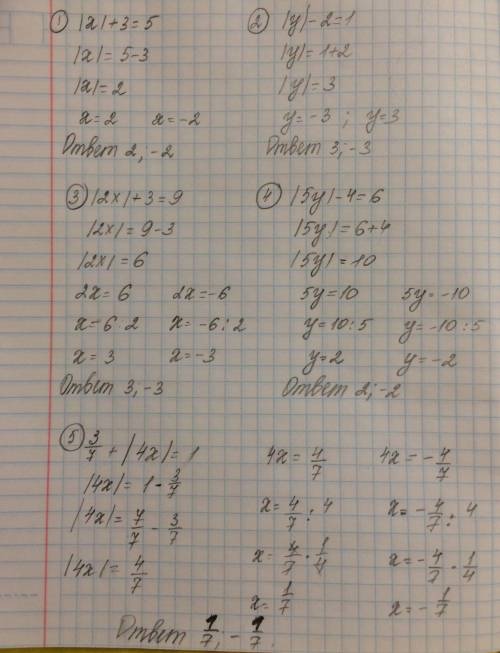 ① |x|+3=5
|x|=5-3
|x|=2
x=2 x=-2
Ответ 2; -2
② |y|-2=1
|y|=1+2
|y|=3
y=-3 ; y=3
Ответ 3; -3
③ |2x|+3=9
|2x|=9-3
|2x|=6
2x=6 2x=-6
x=6:2 x=-6:2
x=3 x=-3
Ответ 3; -3
④ |5y|-4=6
|5y|=6+4
|5y|=10
5y=10 5y=-10
y=10:5 y=-10:5
y=2 y=-2
Ответ 2; -2
⑤ 3/7 + |4x|=1
|4x|= 1 - 3/7
|4x|= 7/7 - 3/7
|4x|= 4/7
4x= 4/7
x= 4/7 : 4
x= 4/7 · 1/4
x= 1/7
4x= - 4/7
x= - 4/7 : 4
x= - 4/7 · 1/4
x= - 1/7
Ответ 1/7; - 1/7.